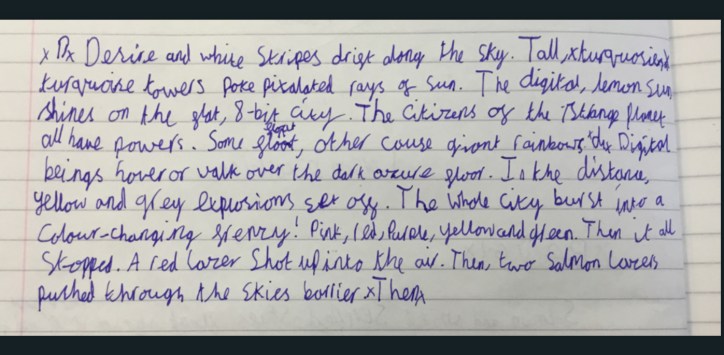 Desire and white Stripes drift along the sky. Tall, xturquosien
turquoise towers poke pixalated rays of sun. The digital, lemon sun
shines on the flat, 8-bit city. The citizens of the strange planet
all have powers. Some float, other cause giant rainbows. Digital
beings hover or walk over the dark azure floor. In the distance,
yellow and grey explosions set off. The whole city burst into a
Colour-changing frenzy! Pink, red, Purple, yellow and green. Then it all
Stopped. A red lazer Shot up into the air. Then, two Salmon lazers
pushed through the skies barrier x Then